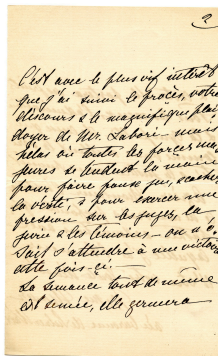 2
C'est avec le plus vif intérêt
que j'ai suivi le procès, votre
discours & le magnifique plai-
doyer de Mr. Labori - mais
hélas où toutes les forces ma-
jeures se tendent la main
pour faire
la vérité, & pour exercer une
pression sur les juges, la
jurie & les témoins - on ne
s'attendre à une victoire
cette fois-ci.
La semence tout de même
est semée, elle germera